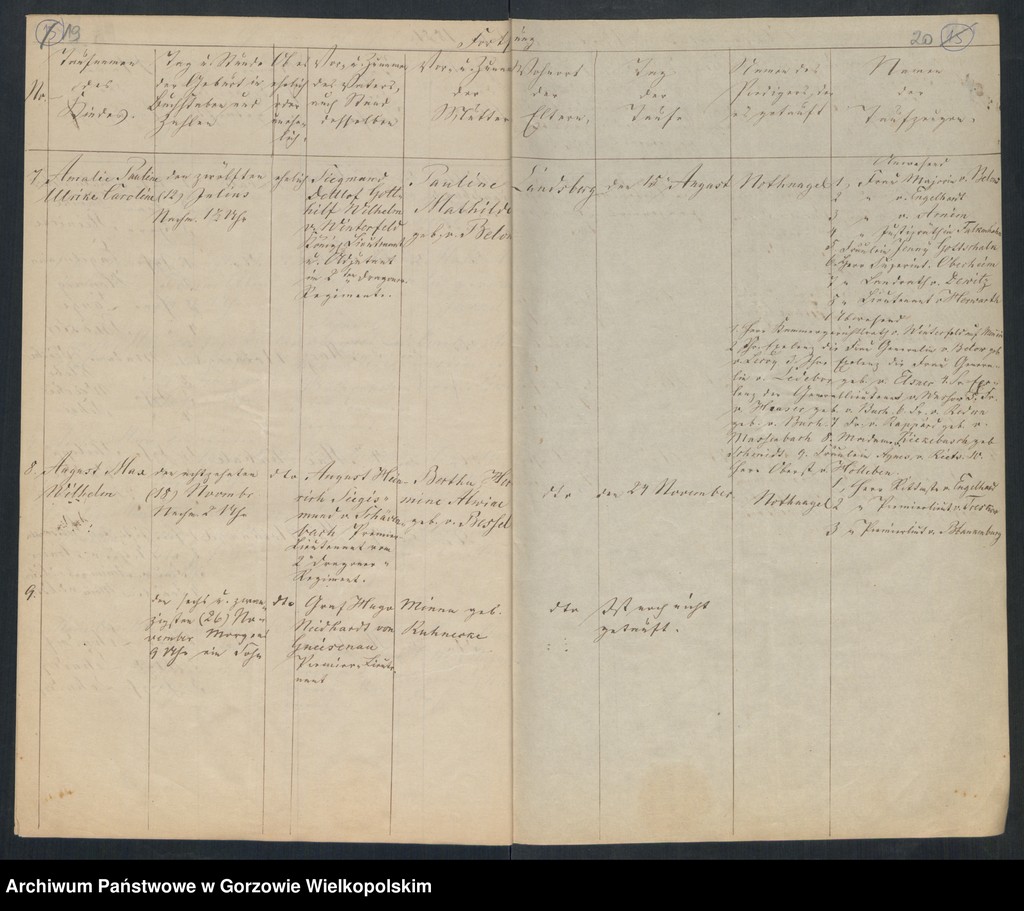 19
20
15
Taufnamen
des
Kindes.
No.
Tag u. Stunde
der Geburt in
Buchstaben und
Zahlen
Ob es
ehelich
oder
unehe-
lich.
Vor- u. Zuname
des Vaters,
auch Stand
desselben
Vor- u. Zuname
der
Mutter
Wohnort
der
Eltern,
Tag
der
Taufe
Namen des
Predigers, der
es getauft
Namen
der
Taufzeugen.
7,
Amalie Pauline
Ulrike Caroline
den zwölften
(12) Julius
Nachm. Uhr
ehelich
Siegmund
Detlof Gott-
hilf Wilhelm
v. Winterfeld
Königl. Lieutenant
u. Adjutant
im 2ten Dragoner-
Regimente.
Pauline
Mathilde
geb. v. Below
Landsberg
den 15 August
Nothnagel
Anwesend
1, Frau Majorin v. Below
2 " v. Engelhardt
3 " v. Arnim
4 " Justizräthin
5 Fräulein Jenny Gottschalk
6 Herr Superint. Oberheim
7 " Landrath v. Dewitz
8 " Lieutenant v. Horwarth
Abwesend
1. Herr Kammergerichtsrath v. Winterfeld auf
2 Ihr. Exzelenz die Frau Generalin v. Below geb.
3. Ihre Exzelenz die Frau Genera-
lin v. Ledebur geb. v. Elsner 4. Se. Exze-
lenz der Generallieutenant v. 5. Fr.
v. geb. v. Buch. 6. Fr. v.
geb. v. Buch. 7 Fr. v. Rappard geb. v.
Marschbach 8. Madame Rickebusch geb.
Schmidt. 9. Fräulein Agnes v. 10.
Herr Oberst v. Holleben.
8.
August Max
Wilhelm
den achtzehnten
(18) Novembr
Nachm. 2 Uhr
dto
August Hein-
rich Sieges-
mund v.
Premier-
Lieutenant vom
2 Dragoner-
Regiment.
Bertha Her
mine Alwine
geb. v. Bessel
dto
den 27 November
Nothnagel
1, Herr v. Engelhard
2 " Premierlieut. v. Treskow
3 " Premierlieut. v. Wannenberg
9.
den sechs u. zwan-
zigsten (26) No-
vember Morgens
9 Uhr ein Sohn
dto
Graf Hugo
Neidhardt von
Gneisenau
Premier-Lieute-
nant
Minna geb.
dto
Ist noch nicht
getauft.
Archiwum Państwowe w Gorzowie Wielkopolskim